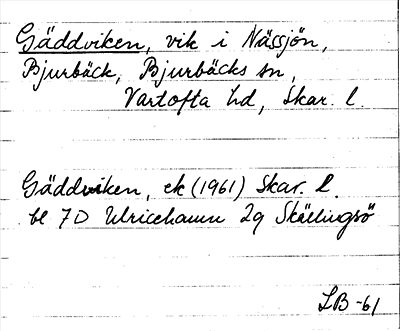 Gäddviken, vik i Nässjön,
Bjurbäck, Bjurbäcks sn,
Vartofta hd, Skar. l.
Gäddviken, ek (1961) Skar. l.
bl 7D Ulricehamn 2g Skällingsö
LB-61